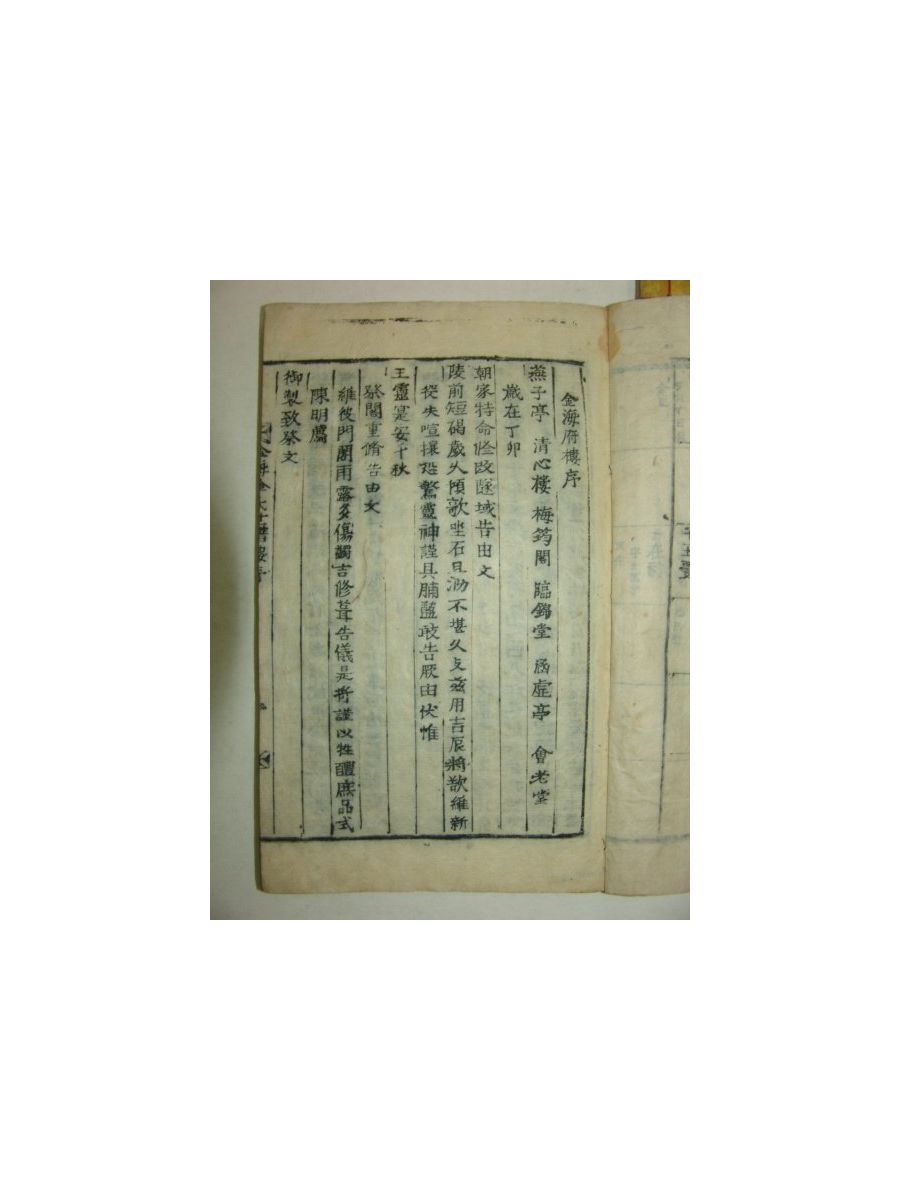 金海府樓序
燕子亭 清心樓 梅筠閣 臨錦堂 涵虛亭 會老堂
歲在丁卯
朝家特命修改塋域告由文
陵前短碣歲久頃欹坐石且泐不堪久支茲用吉辰將欲維新
從失喧攘恐驚靈神謹具脯醢敢告厥由伏惟
王靈寔安千秋
祭閣重脩告由文
維彼門閣雨露多傷蠲吉修葺告儀是將謹以牲醴庶品式
陳明薦
御製致祭文